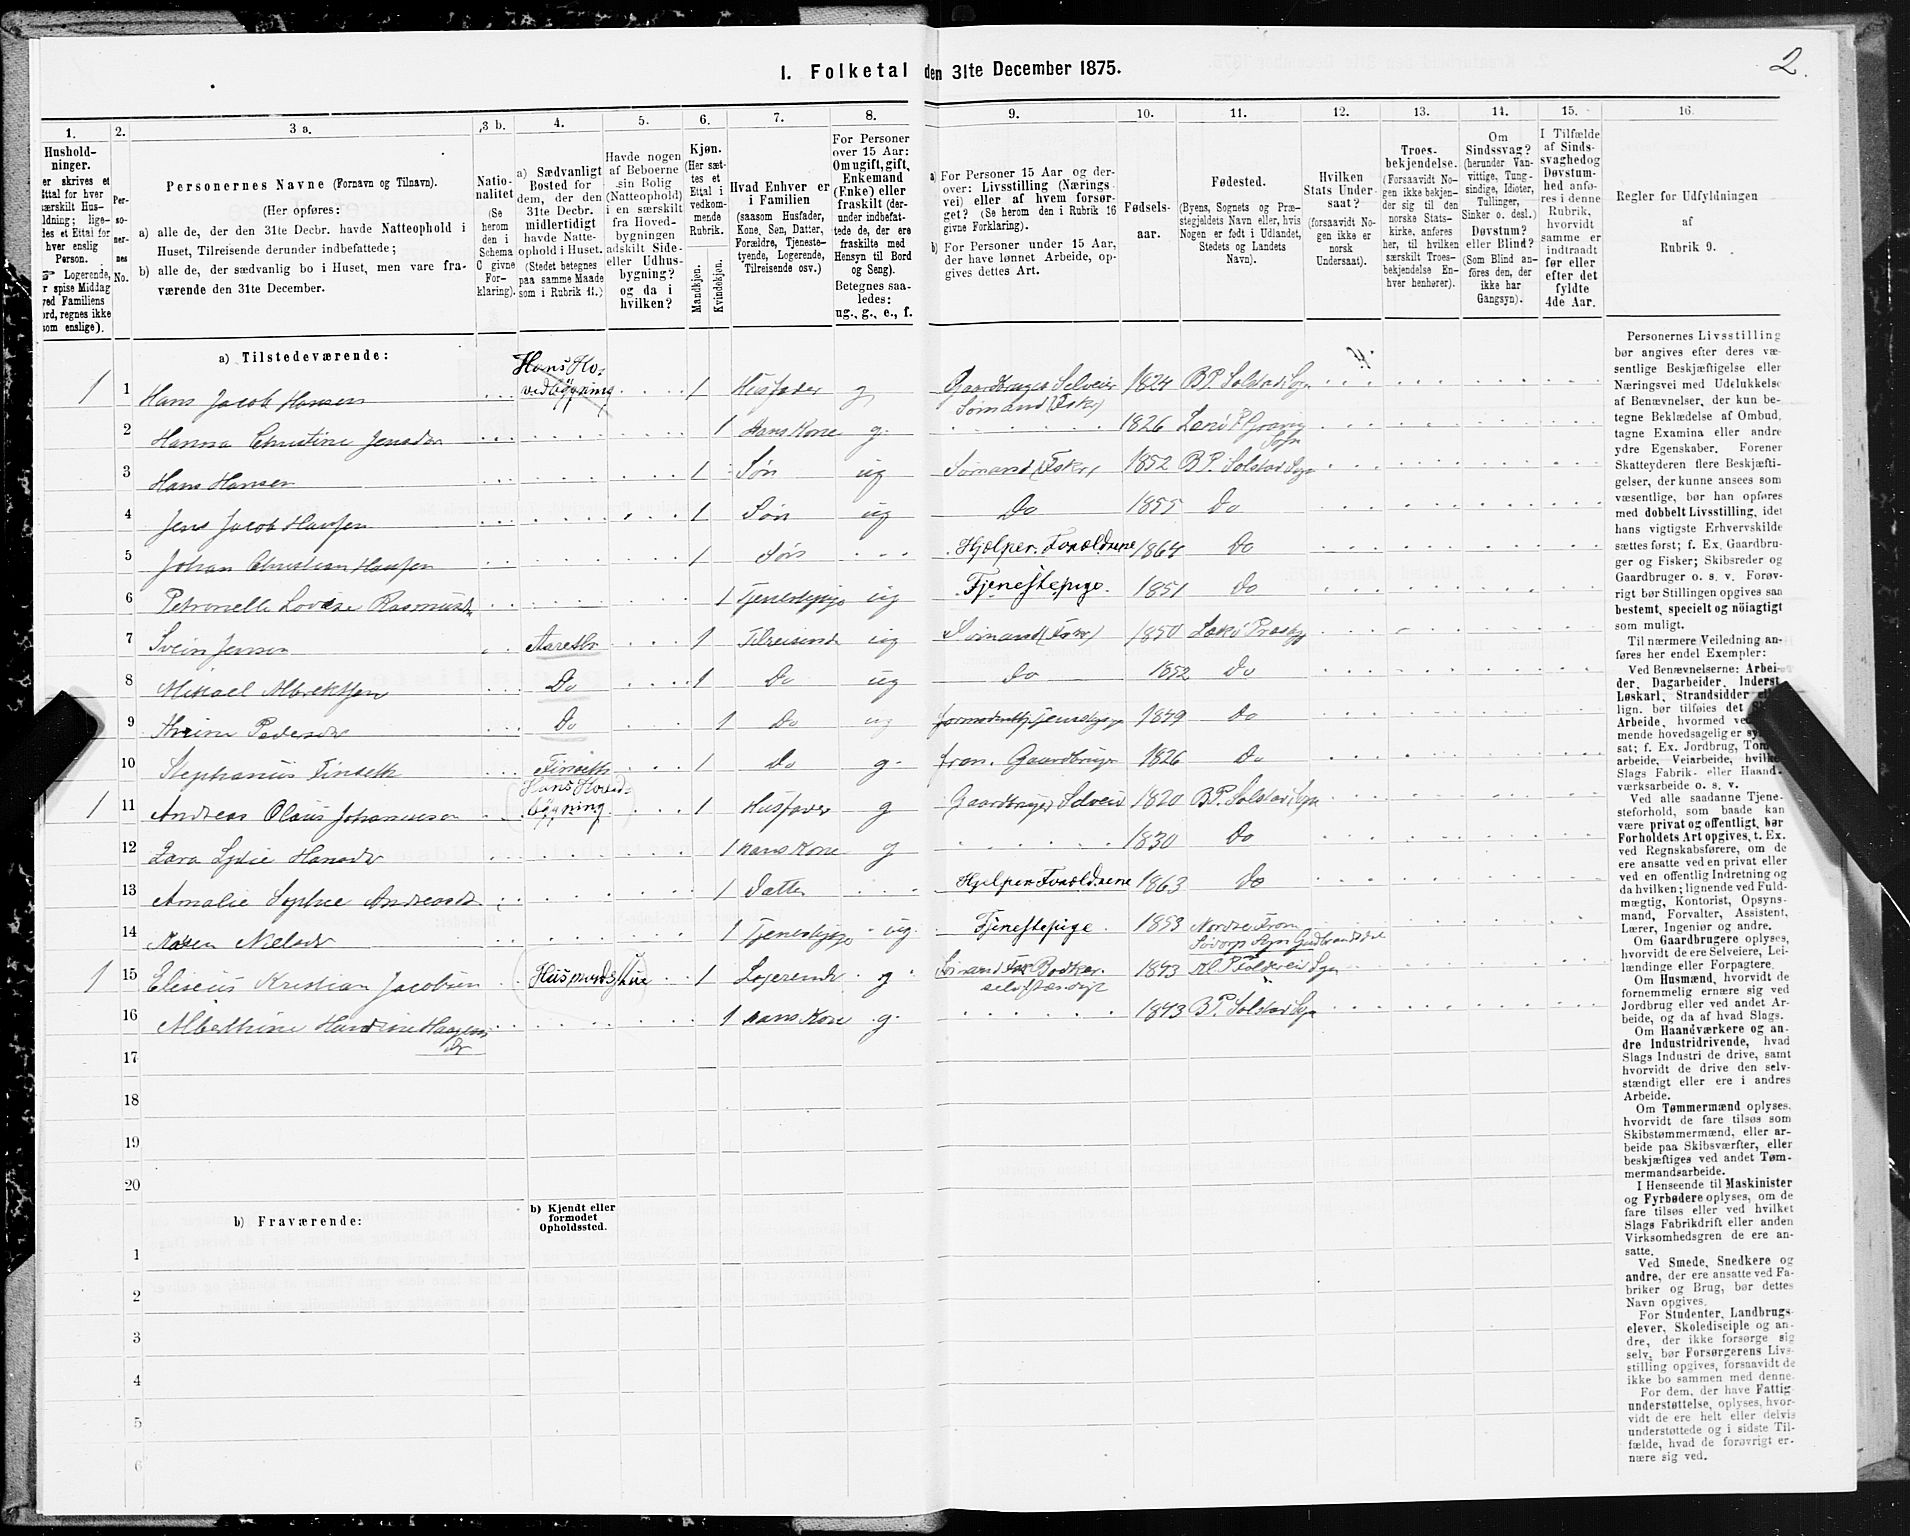 I. Folketal den 31te December 1875.
2.
1. 2. 3 a. 3 b. 4. 5. 6. 7. 8. 9. 10. 11. 12. 13. 14. 15. 16.
Hushold-
ninger.
er skrives et
Ettal for hver
særskilt Hus-
ldning; lige-
des et Ettal for
hver enslig
Person.
Logerende,
r spise Middag
ved Familiens
ord, regnes ikke
som enslige).
Per-
so-
ner-
nes
No.
Personernes Navne (Fornavn og Tilnavn).
(Her opføres:
a) alle de, der den 31te Decbr. havde Natteophold i
Huset, Tilreisende derunder indbefattede;
b) alle de, der sædvanlig bo i Huset, men vare fra-
værende den 31te December.
Natio-
nalitet
(Se
herom
den i
Schema
C givne
For-
klaring).
a) Sædvanligt
Bosted for
dem, der den
31te Decbr.
midlertidigt
havde Natte-
ophold i Huset.
(Stedet betegnes
paa samme Maade
som i Rubrik 11.)
Havde nogen
af Beboerne
sin Bolig
(Natteophold)
i en særskilt
fra Hoved-
bygningen
adskilt Side-
eller Udhus-
bygning?
og da i
hvilken?
Kjøn.
(Her sæt-
tes et
Ettal i
vedkom-
mende
Rubrik.
Mandkjøn.
Kvindekjøn.
Hvad Enhver er
i Familien
(saasom Husfader,
Kone, Søn, Datter,
Forældre, Tjeneste-
tyende, Logerende,
Tilreisende osv.)
For Personer
over 15 Aar:
Om ugift, gift,
Enkemand
(Enke) eller
fraskilt (der-
under indbefat-
tede de, der ere
fraskilte med
Hensyn til Bord
og Seng).
Betegnes saa-
ledes:
ug., g., e., f.
a) For Personer 15 Aar og der-
over: Livsstilling (Nærings-
vei) eller af hvem forsør-
get? (Se herom den i Rubrik 16
givne Forklaring).
b) For Personer under 15 Aar,
der have lønnet Arbeide, op-
gives dettes Art.
Fødsels-
aar.
Fødested.
(Byens, Sognets og Præ-
stegjeldets Navn eller, hvis
Nogen er født i Udlandet,
Stedets og Landets
Navn).
Hvilken
Stats Under-
saat?
(forsaavidt No-
gen ikke er
norsk
Undersaat).
Troes-
bekjendelse.
(Forsaavidt No-
gen ikke bekjen-
der sig til den
norske Stats-
kirke, anføres
her, til hvilken
særskilt Troes-
bekjendelse En-
hver henhører).
Om
Sindssvag?
(herunder Van-
vittige, Tung-
sindige, Idioter,
Tullinger,
Sinker o. desl.)
Døvstum?
eller Blind?
(Som Blind an-
føres den, der
ikke har
Gangsyn).
I Tilfælde
af Sinds-
svaghed og
Døvstum-
hed anfø-
res i denne
Rubrik,
hvorvidt
samme er
indtraadt
før eller
efter det
fyldte
4de Aar.
Regler for Udfyldningen
af
Rubrik 9.
a) Tilstedeværende:
1 1 Hans Jacob Hansen Hans Ho-vedbygning 1 Husfader g Gaardbruger Selveier Sømand (Fisker) 1824 BP. Solstad Sogn
2 Hanna Christine Jensdr 1 Hans Kone g. 1826 Sogn
3 Hans Hansen 1 Søn ug Sømand (Fisker) 1852 BP. Solstad Sogn
4 Jens Jacob Hansen 1 Søn ug Do 1855 Do
5 Johan Christian Hansen 1 Søn Hjelper Forældrene 1864 Do
6 Petronelle Lovise Rasmusd. 1 Tjenestepige ug Tjenestepige. 1851 Do
7 Svein Jensen 1 Tilreisende ug Sømand (Fisker) 1850
8 Mikael Albrektsen Do 1 Do ug Do 1852 Do
9 Pedersdr Do 1 Do ug 1849 Do
10 Stephanus Finseth Finseth 1 Do g. Gaardbruger 1826 Do
1 11 Andreas Olaus Johannesen Hans Hoved-bygning 1 Husfader g Gaardbruger Selveier 1820 BP. Solstad Sogn
12 Lydie Hansdr 1 Hans Kone g 1830 Do
13 Amalie Sophie Andreasdr 1 Datter Hjelper Forældrene 1863 Do
14 Karen Nielsdr 1 Tjenestepige ug. Tjenestepige. 1853 Nordre Fron Sødorp Sogn Gudbrandsdal
1 15 Eliseus Kristian Jacobsen Husmandsstue 1 Logerende g Sømand Bødker selvstændigt 1843 Sogn
16 Alberthine Hansine dr 1 Hans Kone g. 1843 BP. Solstad Sogn
17
18
19
20
b) Fraværende:
b) Kjendt eller
formodet
Opholdssted.
1
2
3
4
5
6
Personernes Livsstilling
bør angives efter deres væ-
sentlige Beskjæftigelse eller
Næringsvei med Udelukkelse
af Benævnelser, der kun be-
tegne Beklædelse af Ombud,
tagne Examina eller andre
ydre Egenskaber. Forener
Skatteyderen flere Beskjæfti-
gelser, der kunne ansees som
væsentlige, bør han opføres
med dobbelt Livsstilling, idet
hans vigtigste Erhvervskilde
sættes først; f. Ex. Gaardbru-
ger og Fisker; Skibsreder og
Gaardbruger o. s. v. Forøv-
rigt bør Stillingen opgives saa
bestemt, specielt og nøiagtigt
som muligt.
Til nærmere Veiledning an-
føres her endel Exempler:
Ved Benævnelserne: Arbei-
der, Dagarbeider, Inderst,
Løskarl, Strandsidder
lign. bør tilføies det
Arbeide, hvormed
mende hovedsagelig er
sat; f. Ex. Jordbrug,
arbeide, Veiarbeide, hvilket
Slags Fabrik- eller Haand-
værksarbeide o. s. v.
Ved alle saadanne Tjene-
steforhold, som baade kan
være privat og offentligt, bør
Forholdets Art opgives, t. Ex.
ved Regnskabsførere, om de
ere ansatte ved en privat eller
ved en offentlig Indretning og
da hvilken; lignende ved Fuld-
mægtig, Kontorist, Opsyns-
mand, Forvalter, Assistent,
Lærer, Ingeniør og andre.
Om Gaardbrugere oplyses,
hvorvidt de ere Selveiere, Lei-
lændinge eller Forpagtere.
Om Husmænd, hvorvidt de
fornemmelig ernære sig ved
Jordbrug eller ved andet Ar-
beide, og da af hvad Slags.
Om Haandværkere og an-
dre Industridrivende, hvad
Slags Industri de drive, samt
hvorvidt de drive den selv-
stændigt eller ere i andres
Arbeide.
Om Tømmermænd oplyses,
hvorvidt de fare tilsøs som
Skibstømmermænd, eller ar-
beide paa Skibsværfter, eller
beskjæftiges ved andet Tøm-
mermandsarbeide.
I Henseende til Maskinister
og Fyrbødere oplyses, om de
fare tilsøs eller ved hvilket
Slags Fabrikdrift eller anden
Virksomhedsgren de ere an-
satte.
Ved Smede, Snedkere og
andre, der ere ansatte ved Fa-
briker og Brug, bør dettes
Navn opgives.
For Studenter, Landbrugs-
elever, Skoledisciple og an-
dre, der ikke forsørge sig
selv, bør Forsørgerens Livs-
stilling opgives, forsaavidt de
ikke bo sammen med denne.
For dem, der have Fattig-
understøttelse, oplyses, hvor-
vidt de ere helt eller delvis
understøttede og i sidste Til-
fælde, hvad de forøvrigt er-
nære sig ved.